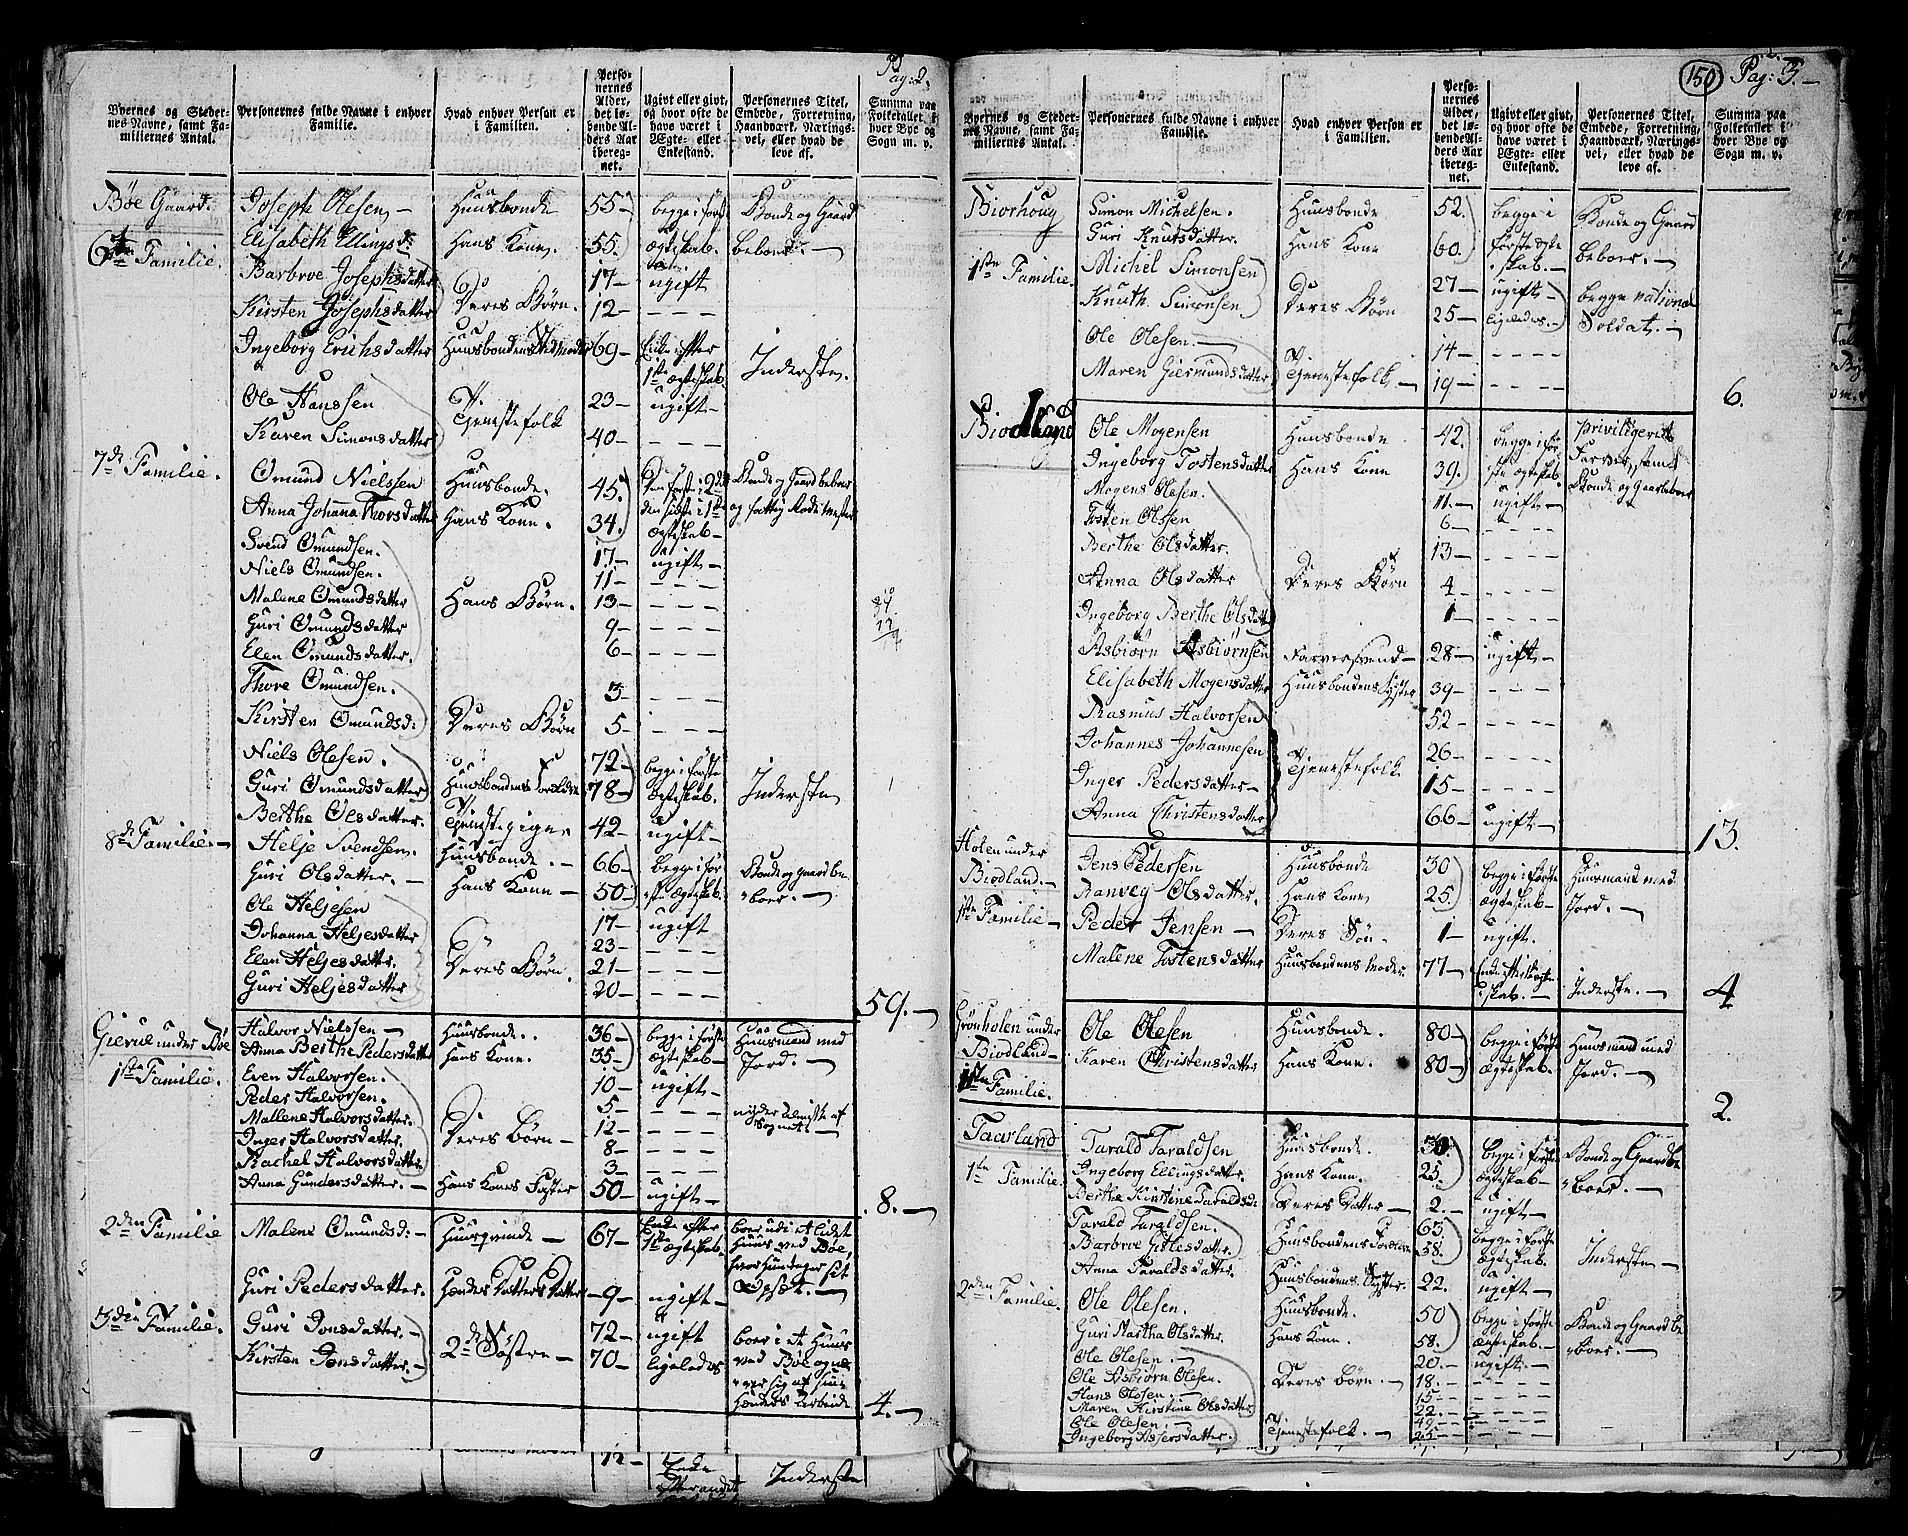 Pag: 2.
Byernes og Stedernes Navne, samt Familiernes Antal.
Personernes fulde Navne i enhver Familie.
Hvad enhver Person er i Familien.
Personernes Alder, det løbende Alders Aar iberegnet.
Ugivt eller givt, og hvor ofte de have været i Ægte- eller Enkestand.
Personernes Titel, Embede, Forretning, Haandværk, Næringsvei, eller hvad de leve af.
Summa paa Folketallet i hver Bye og Sogn m. v.
Bøe Gaard. Joseph Olesen – Huusbonde 55 begge i først Bonde og Gaard
6te Familie. Elisabeth Ellingsd: Hans Kone. 55. Ægteskab. beboer. –
Barbroe Josephsdatter 17 – ugift
Kirsten Josephsdatter Deres Børn. 12 – – – –
Ingeborg Erichsdatter Huusbondens Stedmoder 69 – Enke efter 1ste Ægteskab. Inderste.
Ole Hanssen Tjenestefolk 23 – ugift –
Karen Simonsdatter 40 – – – –
7de Familie. Omund Nielssen Huusbonde. 45. Den første i 2det Bonde og Gaard beboer
Anna Johana Thorsdatter Hans Kone. 34. den sidste i 1ste Ægteskab – og fattig Rodemester
Svend Omundsen. 17 – ugift –
Niels Omundsen. 11 – – – –
Malene Omundsdatter Hans Børn. 13 – – – –
Guri Omundsdatter 9 – – – –
Elen Omundsdatter. 6 – – – –
Thore Omundsen. 3 – – – –
Kirsten Omundsd: Deres Børn 5 – – – –
Niels Olesen. 72 – begge i første
Guri Omundsdatter Huusbondens Forældre 78 – Ægteskab. Inderste
Berthe Olsdatter. Tjenestepige 42 – ugift –
8de Familie. – Helje Svendsen. Huusbonde. – 66 – begge i før- Bonde og gaard be
Guri Olsdatter. – Hans Kone – 50 – ste Ægteskab. boer. –
Ole Heljesen 17 – ugift
Johanna Heljesdatter 23 – – – –
Elen Heljesdatter. Deres Børn. 21 – – – –
Guri Heljesdatter 20 – – – –
59. –
Gierue under Bøe Halvor Nielssen – Huusbonde. 36 – begge i første Huusmand med
Anna Berthe Pedersdatter Hans Kone. 35 – Ægteskab – Jord. –
1ste Familie. Even Halvorsen. 10 – ugift –
Peder Halvorsen. 5 – – – –
Mallene Halvorsdatter. Deres Børn – 12 – – – – nyder Almisse af Sognet. –
Inger Halvorsdatter. 8 – – – –
Rachel Halvorsdatter 3 – – – –
Anna Gundersdatter. – Hans Kones Søster 50 – ugift –
8. –
2den Familie Malene Omundsd: – Huusqvinde – 67 – Enke efter 1ste Ægteskab. boer udi et lidet Huus ved Bøe,
Guri Pedersdatter. Hendes Datters Datter – 9 – ugift –
3die Familie. Guri Jonsdatter. – 72 – ugift boer i et Huus
Kirsten Jonsdatter. – 2de Søstre – 70 – ligeledes ved Bøe
Hænders Arbeide
4. –
Enke Inderste
150
Pag: 3. –
Byernes og Stedernes Navne, samt Familiernes Antal.
Personernes fulde Navne i enhver Familie.
Hvad enhver Person er i Familien.
Personernes Alder, det løbende Alders Aar iberegnet.
Ugivt eller givt, og hvor ofte de have været i Ægte- eller Enkestand.
Personernes Titel, Embede, Forretning, Haandværk, Næringsvei, eller hvad de leve af.
Summa paa Folketallet i hver Bye og Sogn m. v.
Biorhoug Simon Michelsen. Huusbonde 52. begge i Bonde og Gaard
Guri Knutsdatter. Hans Kone 60. første Ægte skab. – beboer. –
1ste Familie. Michel Simonsen 27 – ugift – begge national
Knuth Simonsen Deres Børn 25 – ligeledes. – Soldat. –
Ole Olesen. – 14 – – – –
Maren Giermundsdatter Tjenestefolk – 19 – – – –
6.
Biodland Ole Mogensen Huusbonde 42. begge i før- priviligerit
Ingeborg Tostensdatter Hans Kone 39. ste Ægteskab. Farver, samt
Mogens Olesen. 11. – ugift – Bonde og Gaardbeboer
Tosten Olssen 6 – – – –
Berthe Olsdatter. 13 – – – –
Anna Olsdatter Deres Børn 4 – – – –
Ingeborg Berthe Olsdatter 1 – – – –
Asbiørn Asbiørnsen Farversvend – 28 – ugift –
Elisabeth Mogensdatter Huusbondens Søster 39 – – – –
Rasmus Halvorsen 52 – – – –
Johannes Johannesen Tjenestefolk 26 – – – –
Inger Pedersdatter – 15 – – – –
Anna Christensdatter 66 – ugift –
13.
Holen under Biodland. – Jens Pedersen Huusbonde 30 begge i første Huusmand med
1ste Familie – Ranveg Olsdatter. Hans Kone 25. Ægteskab – Jord. –
Peder Jensen – Deres Søn – 1 – ugift.
Malene Tostensdatter Huusbondens Moder 77 – Enke efter 1ste Ægteskab. – Inderste. –
4
Grønholen under Biodland – Ole Olesen Huusbonde. 80 – begge i første Huusmand med
Karen Christensdatter Hans Kone. 80 – Ægteskab. Jord. –
1ste Familie.
2.
Taarland Tarald Taraldsen Huusbonde. 30. begge i først Bonde og Gaardbe
1ste Familie. Ingeborg Ellingsdatter. Hans Kone. 25. Ægteskab – boer. –
Berthe Kirstine Taraldsd: Deres Datter – 2. – ugift –
Tarald Taraldsen. 63 begge i første
Barbroe Gitlesdatter. Huusbondens Forældre 58. Ægteskab. Inderste –
Anna Taraldsdatter. Huusbondens Søster. 22. ugift –
2den Familie. Ole Olesen. Huusbonde. 50 begge i første Bonde og Gaard be
Guri Martha Olsdatter. Hans Kone. 58. Ægteskab – boer. –
Ole Olesen. – 20 – ugift. –
Ole Asbiørn Olesen. Deres Børn. – 18. – – – –
Hans Olesen. – 15 – – – –
Maren Kirstine Olsdatter 22. – – – –
Ole Olesen. – Tjenestefolk. – 49 – – – –
Ingeborg Assersdatter. 25 – – – –